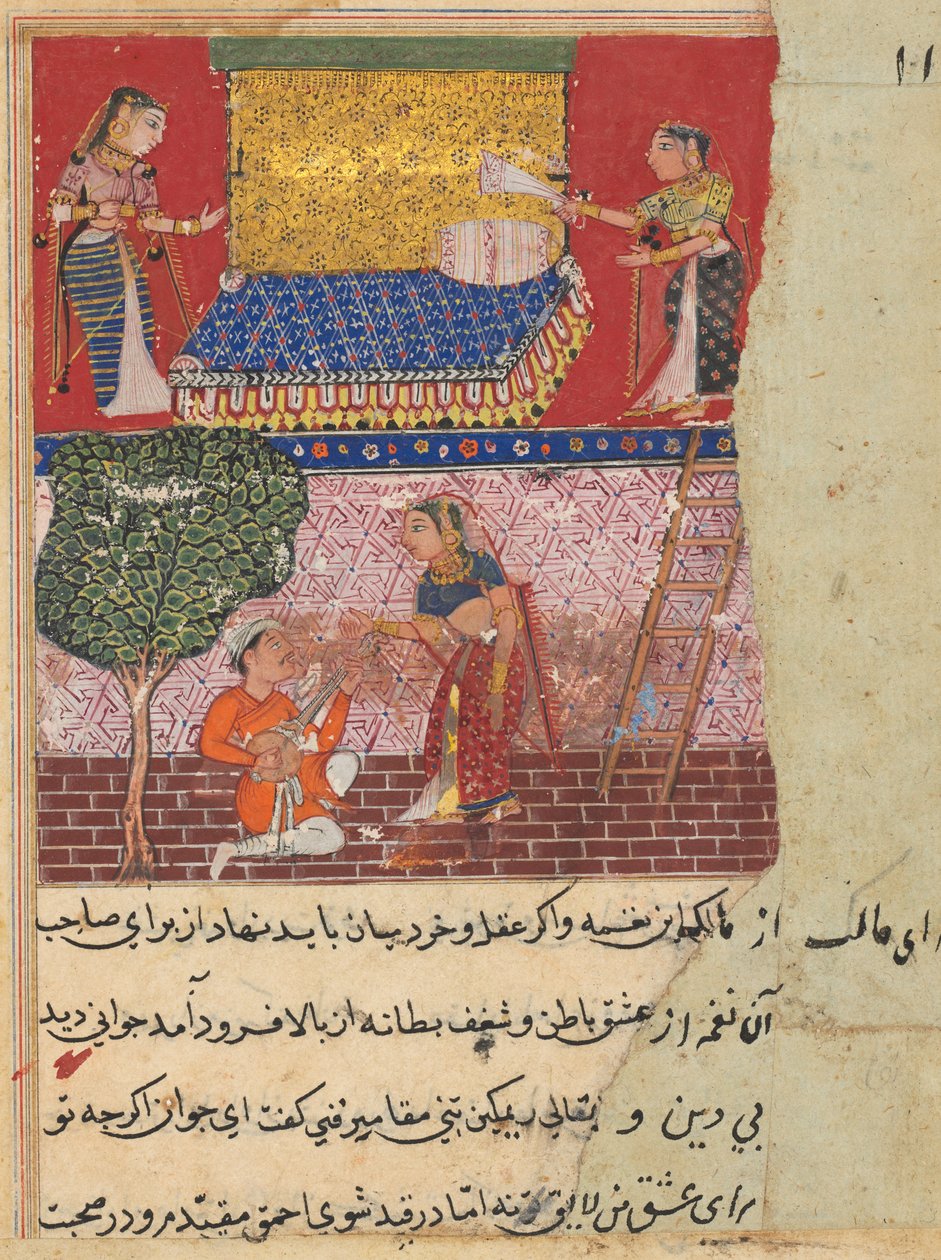 از مالکه این نغمه واکر عقل وخرد میان باید نهاد از برای صاحب
آن نغمه از عشق باطن و شغف بطانه از بالا فرود آمد جوانی دید
بی دین و بقالی ریمکین تنی مقامیر فنی کفت ای جوان اکرجه تو
برای عشق من لایق نه امّا در قید شوی احمق مقیّد مرو در صحبت